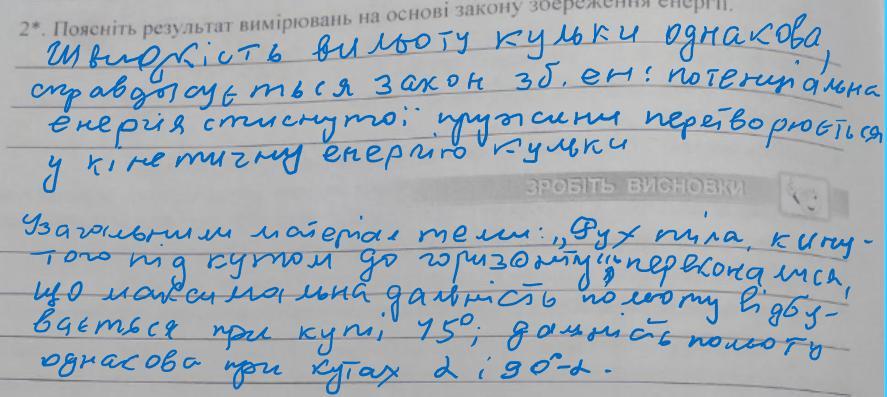 2*. Поясніть результат вимірювань на основі закону збереження енергії.
Швидкість вильоту кульки однакова,
справджується закон зб. ен: потенціальна
енергія стиснутої пружини перетворюється
у кінетичну енергію кульки
ЗРОБІТЬ ВИСНОВКИ
Узагальнили матеріал теми: „Рух тіла, кину-
того під кутом до горизонту", переконалися,
що максимальна дальність польоту відбу-
вається при куті 45°; дальність польоту
однакова при кутах α і 90°-α.